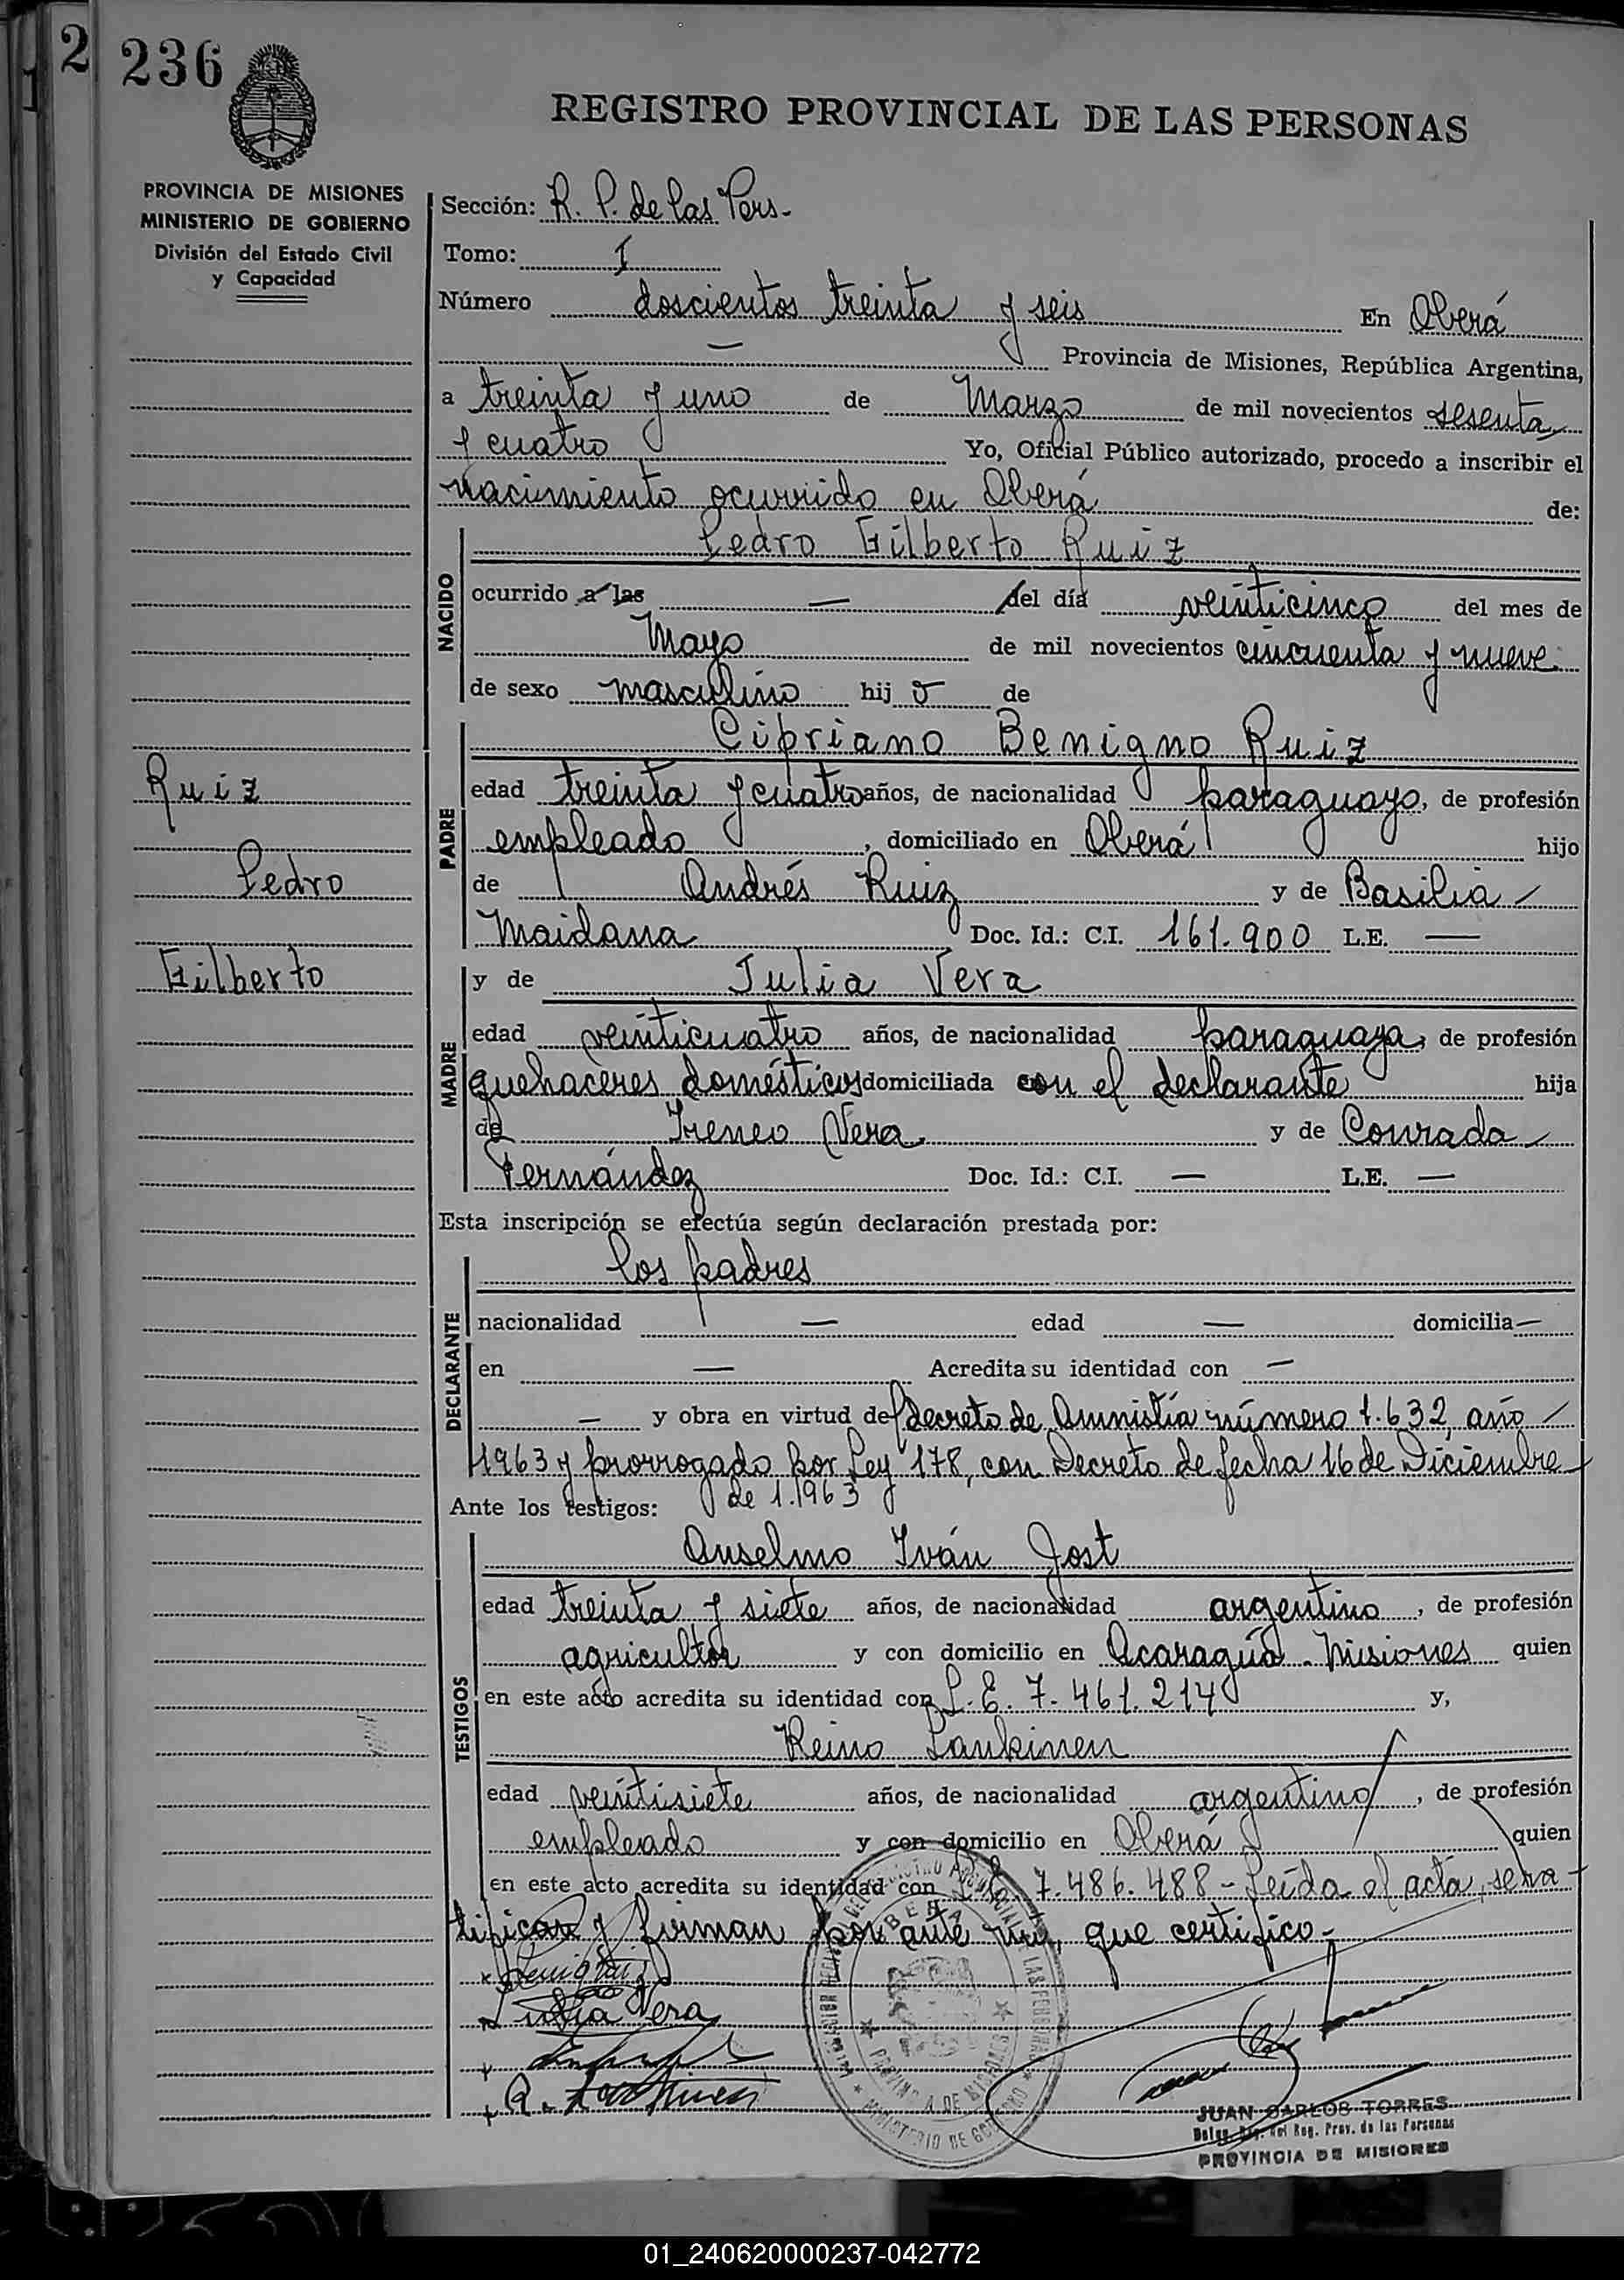 2
236
REGISTRO PROVINCIAL DE LAS PERSONAS
PROVINCIA DE MISIONES
MINISTERIO DE GOBIERNO
División del Estado Civil
y Capacidad
Sección: R. P. de las Pers.
Tomo: I
Número doscientos treinta y seis En Oberá
— Provincia de Misiones, República Argentina,
a treinta y uno de Marzo de mil novecientos sesenta
y cuatro Yo, Oficial Público autorizado, procedo a inscribir el
nacimiento ocurrido en Oberá de:
NACIDO
Pedro Gilberto Ruiz
ocurrido a las — del día veinticinco del mes de
Mayo de mil novecientos cincuenta y nueve
de sexo masculino hijo de
PADRE
Cipriano Benigno Ruiz
edad treinta y cuatro años, de nacionalidad paraguayo, de profesión
empleado, domiciliado en Oberá hijo
de Andrés Ruiz y de Basilia
Maidana Doc. Id.: C.I. 161.900 L.E. —
MADRE
y de Julia Vera
edad veinticuatro años, de nacionalidad paraguaya, de profesión
quehaceres domésticos domiciliada con el declarante hija
de Ireneo Vera y de Conrada
Fernández Doc. Id.: C.I. — L.E. —
Ruiz
Pedro
Gilberto
Esta inscripción se efectúa según declaración prestada por:
DECLARANTE
los padres
nacionalidad — edad — domicilia —
en — Acredita su identidad con —
— y obra en virtud del decreto de Amnistía número 1.632, año
1963 y prorrogado por Ley 178, con Decreto de fecha 16 de Diciembre
de 1.963
Ante los testigos:
TESTIGOS
Anselmo Iván Jost
edad treinta y siete años, de nacionalidad argentino, de profesión
agricultor y con domicilio en Acaraguá - Misiones quien
en este acto acredita su identidad con L. E. 7.461.214 y,
Reino Laukinen
edad veintisiete años, de nacionalidad argentino, de profesión
empleado y con domicilio en Oberá quien
en este acto acredita su identidad con L.E. 7.486.488 - Leída el acta, se ra-
tifican y firman por ante mí, que certifico.-
Julia Vera
JUAN CARLOS TORRES
del Reg. Prov. de las Personas
PROVINCIA DE MISIONES
01_240620000237-042772